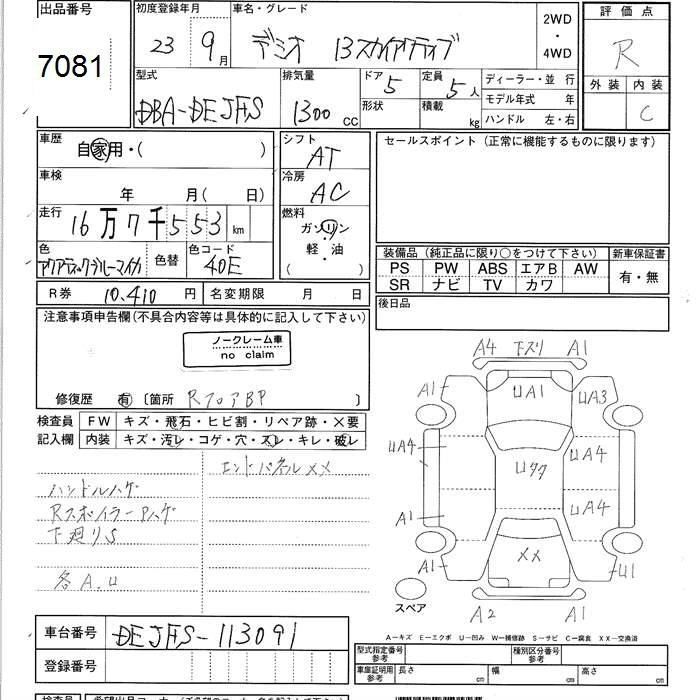 出品番号
初度登録年月
車名・グレード
2WD
・
4WD
評価点
7081
23 9月
デミオ 13スカイアクティブ
R
型式
排気量
ドア 5
定員 5人
ディーラー・並 行
外装 内装
DBA-DEJFS
1300cc
形状
積載 kg
モデル年式 年
ハンドル 左・右
C
車歴
自家用・( )
シフト
AT
セールスポイント(正常に機能するものに限ります)
車検
年 月( 日)
冷房
AC
走行
16万7千553km
燃料
ガソリン
軽・油
( )
色
アクアティックブルーマイカ
色替
色コード
40E
装備品(純正品に限り○をつけて下さい)
新車保証書
PS PW ABS エアB AW
SR ナビ TV カワ
有・無
R券 10,410円
名変期限 月 日
後日品
注意事項申告欄(不具合内容等は具体的に記入して下さい)
ノークレーム車
no claim
修復歴 有 〔箇所 RフロアBP 〕
検査員
記入欄
FW キズ・飛石・ヒビ割・リペア跡・×要
内装 キズ・汚レ・コゲ・穴・スレ・キレ・破レ
エンドパネルXX
ハンドルハゲ
RスポイラーAハゲ
下廻りS
各A.U
A4 下ズリ A1
A1 UA1 UA3
UA4 UA4
Uタタ
A1 UA4
XX
A1 U1
スペア
A2 A1
A-キズ E-エクボ U-凹み W-補修跡 S-サビ C-腐食 XX-交換済
車台番号 DEJFS-113091
登録番号
型式指定番号
参考
種別区分番号
参考
車庫証明用
参考
長さ cm 幅 cm 高さ cm